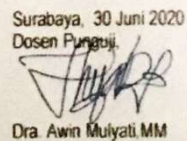 Surabaya, 30 Juni 2020
Dosen Punguji,
Dra. Awin Mulyati, MM